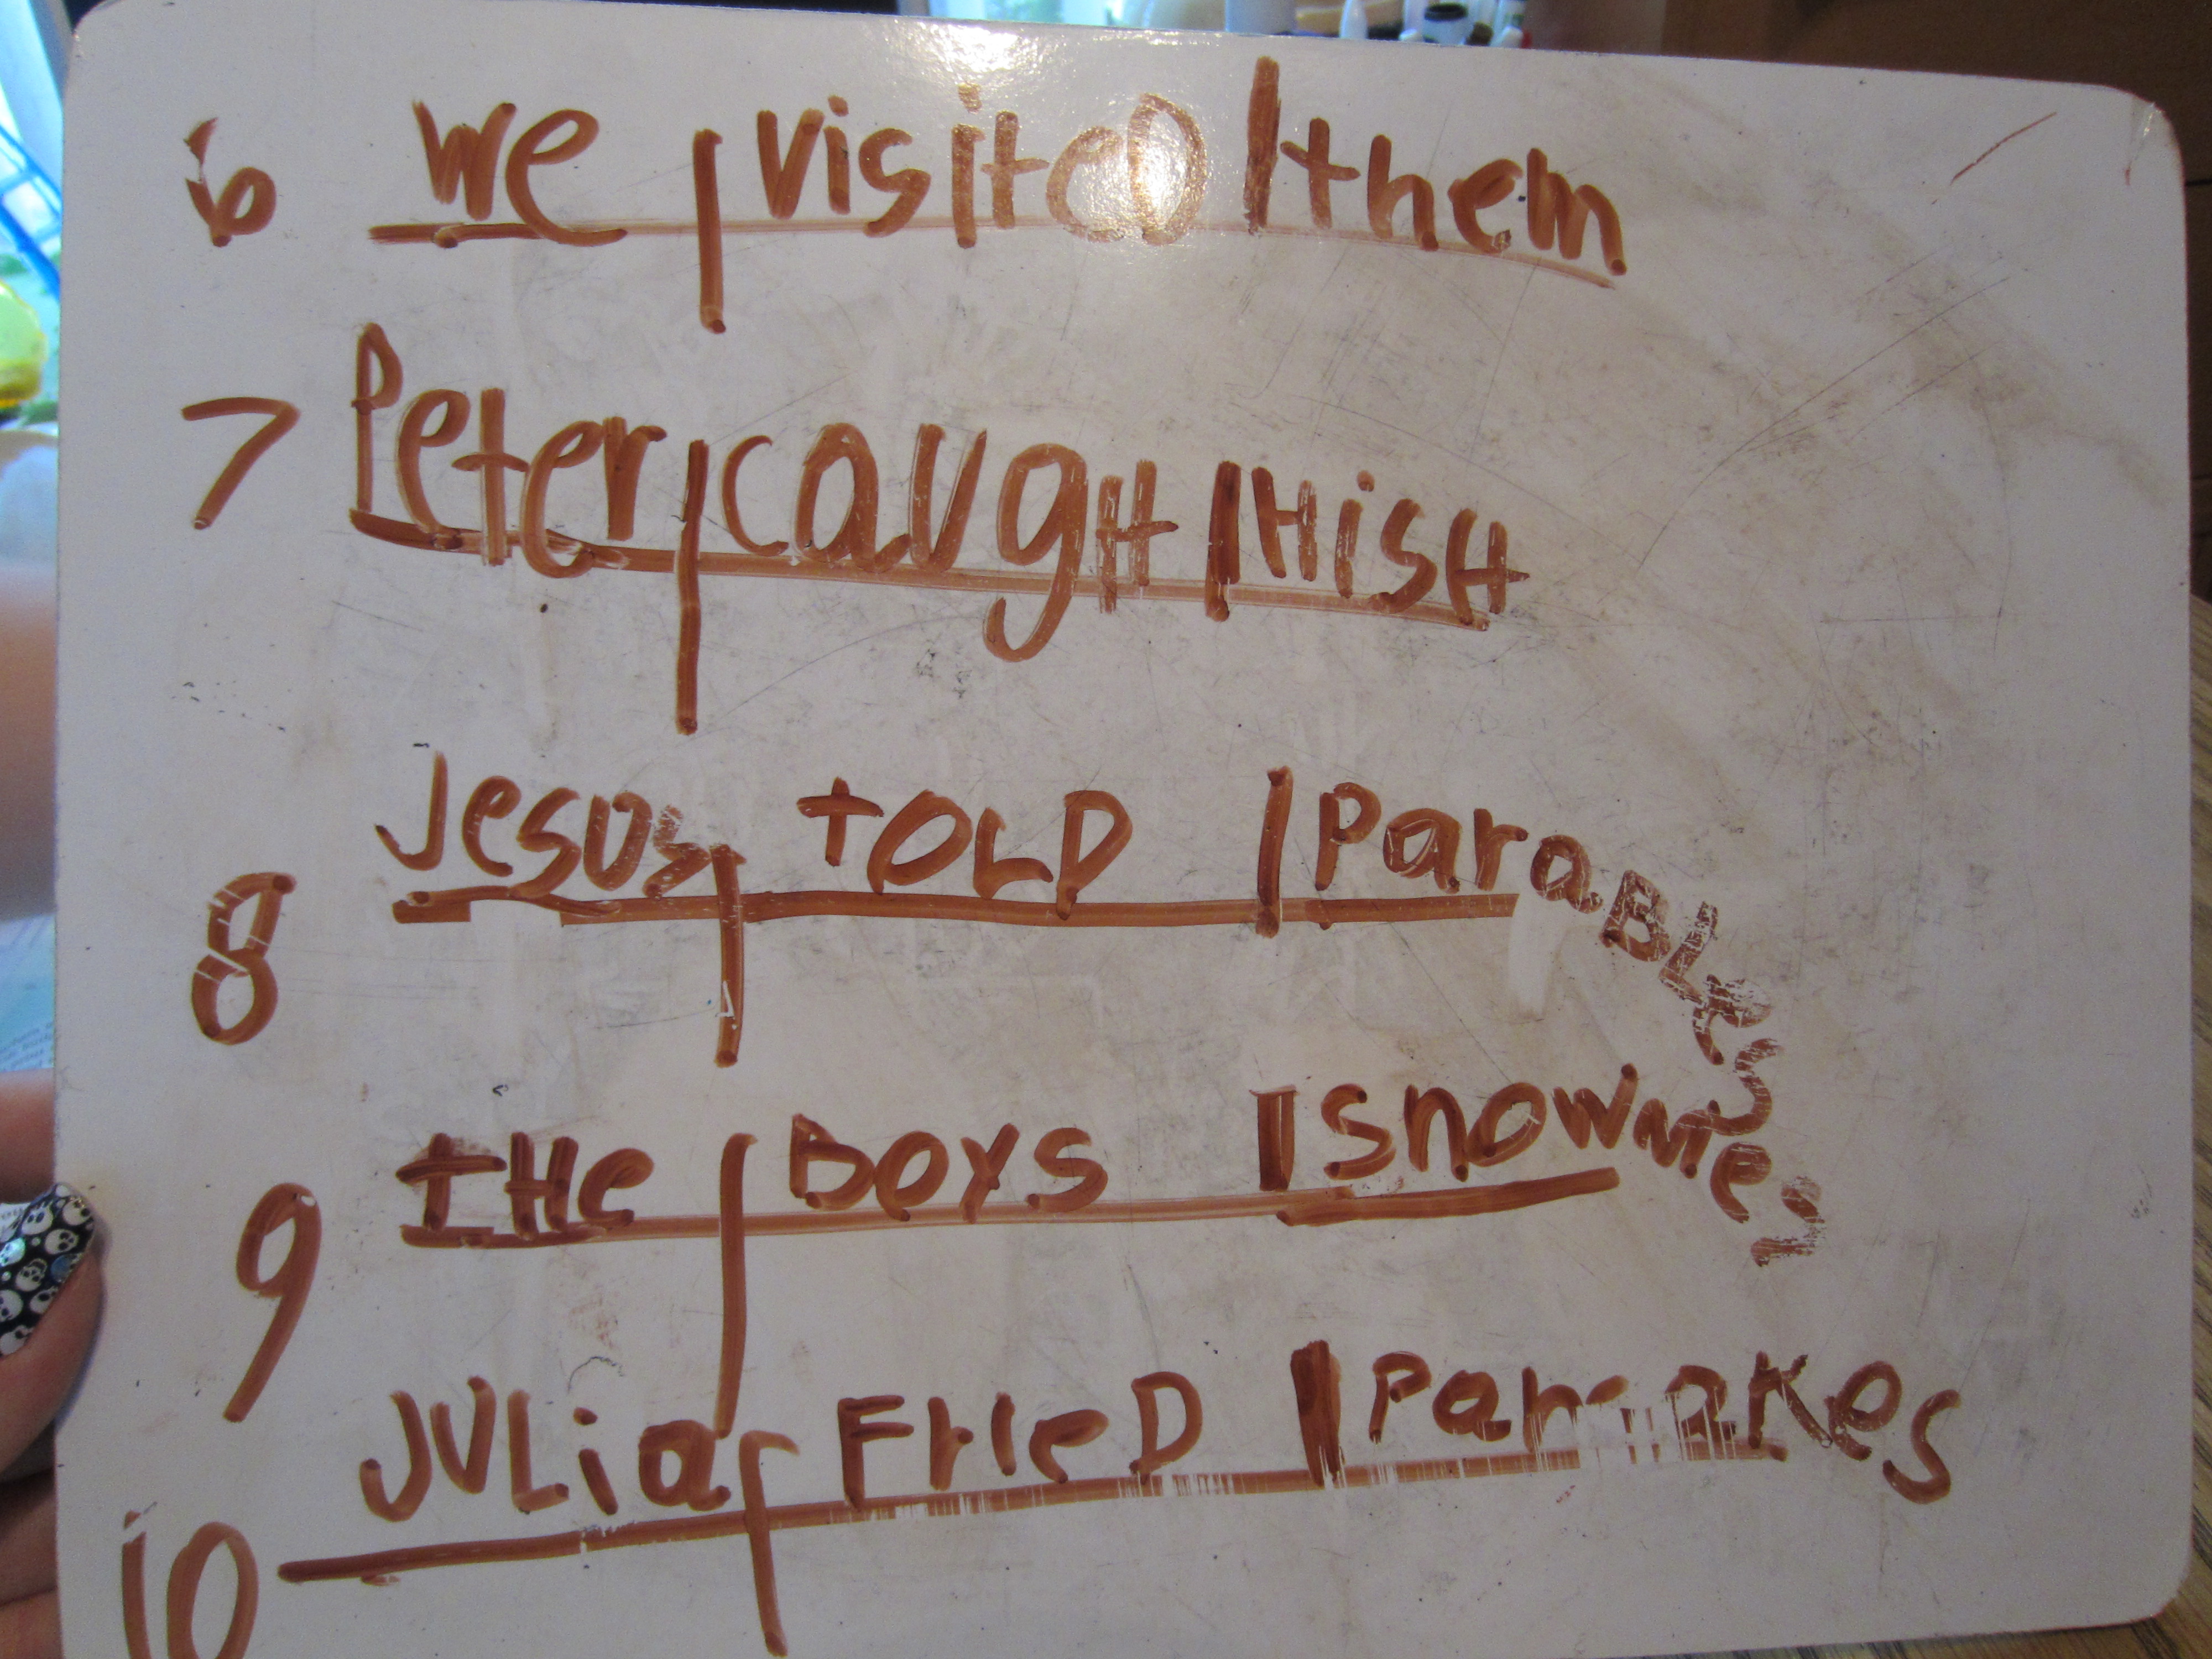 6 We | visiteD | them
7 Peter | caugHt | HisHt
8 Jesus | tOLD | ParaBLes
9 tHe | Boys | snowmes
10 JULia | FrieD | Pancakes